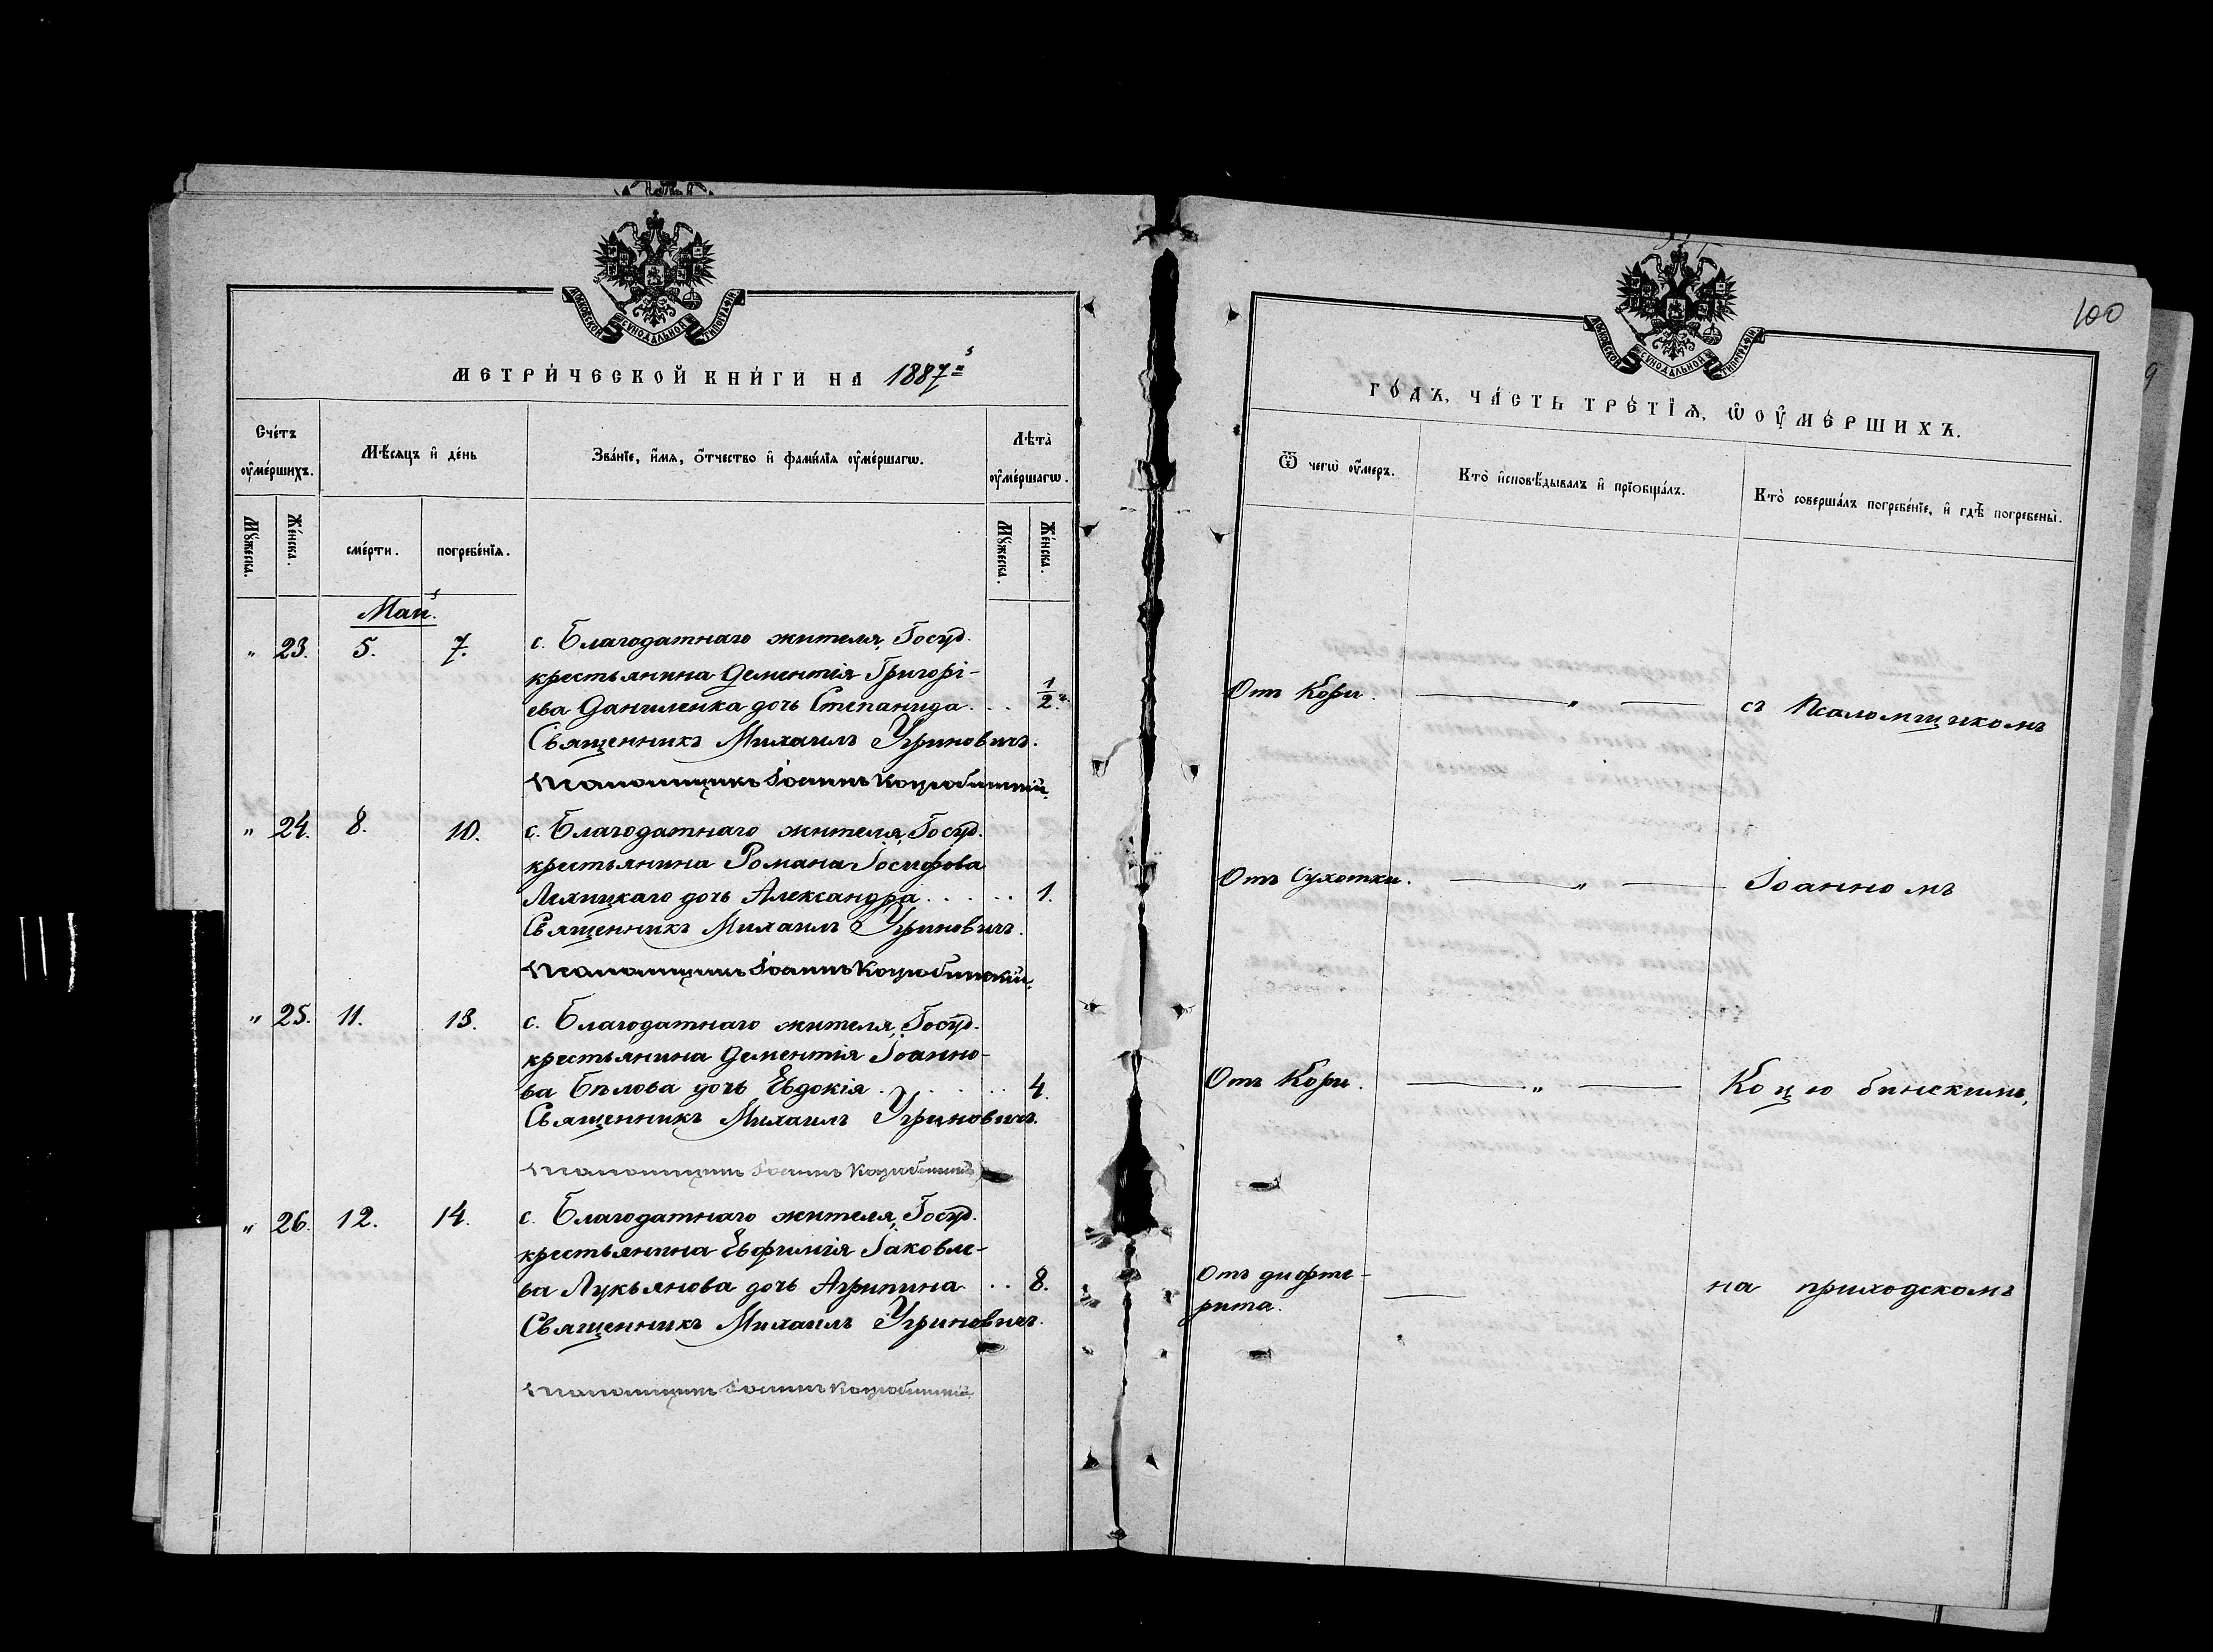 МОСКОВСКОЙ СѴНОДАЛЬНОЙ ТИПОГРАФІИ
МЕТРИ́ЧЕСКОЙ КНИ́ГИ НА 1887й
Сче́тъ оу҆ме́ршихъ.
Мѣ́сяцъ и҆ де́нь
Зва́нїе, и҆́мя, о҆́тчество и҆ фами́лїя оу҆ме́ршагѡ.
Лѣта̀ оу҆ме́ршагѡ.
Мꙋ́жеска.
Же́нска.
сме́рти.
погребе́нїя.
Мꙋ́жеска.
Же́нска.
Май.
" 23. 5. 7. с. Благодатнаго жителя, Госуд.
крестьянина Дементія Григорі-
ева Даниленка дочь Степанида . . ½ г.
Священникъ Михаилъ Угриновичъ.
Псаломщикъ Іоаннъ Коцюбинскій.
" 24. 8. 10. с. Благодатнаго жителя, Госуд.
крестьянина Романа Іосифова
Ляхицкаго дочь Александра . . . . . 1.
Священникъ Михаилъ Угриновичъ.
Псаломщикъ Іоаннъ Коцюбинскій.
" 25. 11. 13. с. Благодатнаго жителя, Госуд.
крестьянина Дементія Іоанно-
ва Бѣлова дочь Евдокія . . . . . 4.
Священникъ Михаилъ Угриновичъ.
Псаломщикъ Іоаннъ Коцюбинскій
" 26. 12. 14. с. Благодатнаго жителя, Госуд.
крестьянина Евфимія Іаковле-
ва Лукьянова дочь Агрипина . . . 8.
Священникъ Михаилъ Угриновичъ.
Псаломщикъ Іоаннъ Коцюбинскій.
100
9
МОСКОВСКОЙ СѴНОДАЛЬНОЙ ТИПОГРАФІИ
ГО́ДЪ, ЧА́СТЬ ТРЕ́ТЇЯ, Ѡ҆ ОУ҆МЕ́РШИХЪ.
Ѿ чегѡ̀ оу҆́меръ.
Кто̀ и҆сповѣ́дывалъ и҆ прїѡбща́лъ.
Кто̀ соверша́лъ погребе́нїе, и҆ гдѣ̀ погребены̀.
Отъ Кори. — " — съ Псаломщикомъ
Отъ Сухотки. — " — Іоанномъ
Отъ Кори. — " — Коцюбинскимъ,
Отъ дифте-
рита. — на приходскомъ